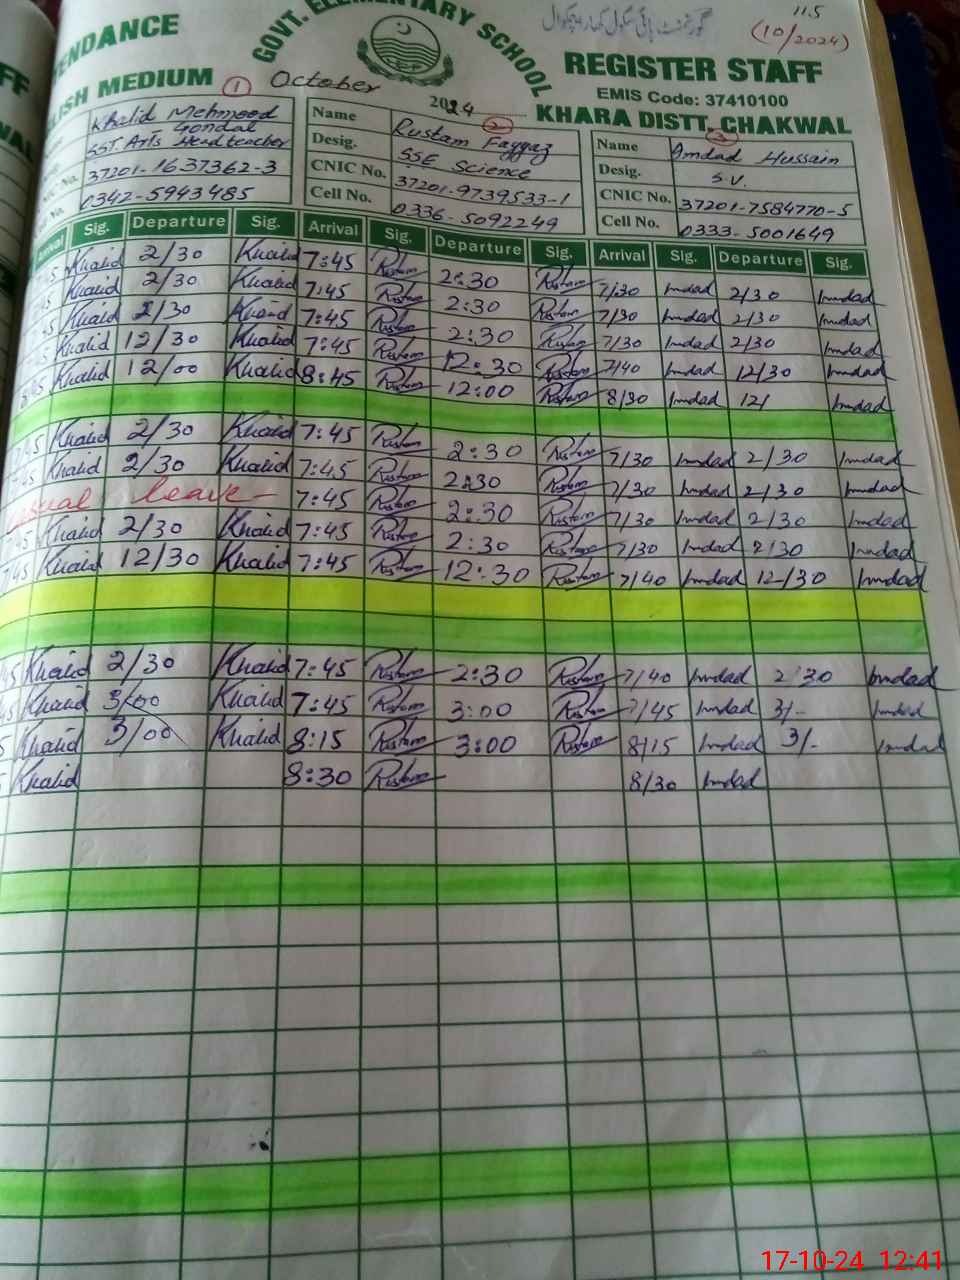 11.5
GOVT. ELEMENTARY SCHOOL
(10/2024)
ENDANCE
REGISTER STAFF
ISH MEDIUM
1 October 2024
EMIS Code: 37410100
KHARA DISTT. CHAKWAL
Khalid Mehmood Gondal
SST Arts Headteacher
37201-1637362-3
0342-5943485
2
Name Rustam Fayyaz
Desig. SSE Science
CNIC No. 37201-9739533-1
Cell No. 0336-5092249
3
Name Amdad Hussain
Desig. S.V.
CNIC No. 37201-7584770-5
Cell No. 0333-5001649
rival Sig. Departure Sig. Arrival Sig. Departure Sig. Arrival Sig. Departure Sig.
45 Khalid 2/30 Khalid 7:45 Rustam 2:30 Rustam 7/30 Imdad 2/30 Imdad
Khalid 2/30 Khalid 7:45 Rustam 2:30 Rustam 7/30 Imdad 2/30 Imdad
45 Khalid 2/30 Khalid 7:45 Rustam 2:30 Rustam 7/30 Imdad 2/30 Imdad
45 Khalid 12/30 Khalid 7:45 Rustam 12:30 Rustam 7/40 Imdad 12/30 Imdad
45 Khalid 12/00 Khalid 8:45 Rustam 12:00 Rustam 8/30 Imdad 12/ Imdad
7/45 Khalid 2/30 Khalid 7:45 Rustam 2:30 Rustam 7/30 Imdad 2/30 Imdad
45 Khalid 2/30 Khalid 7:45 Rustam 2:30 Rustam 7/30 Imdad 2/30 Imdad
casual leave 7:45 Rustam 2:30 Rustam 7/30 Imdad 2/30 Imdad
45 Khalid 2/30 Khalid 7:45 Rustam 2:30 Rustam 7/30 Imdad 2/30 Imdad
7/45 Khalid 12/30 Khalid 7:45 Rustam 12:30 Rustam 7/40 Imdad 12/30 Imdad
45 Khalid 2/30 Khalid 7:45 Rustam 2:30 Rustam 7/40 Imdad 2/30 Imdad
45 Khalid 3/00 Khalid 7:45 Rustam 3:00 Rustam 7/45 Imdad 3/- Imdad
5 Khalid 3/00 Khalid 8:15 Rustam 3:00 Rustam 8/15 Imdad 3/- Imdad
5 Khalid 8:30 Rustam 8/30 Imdad
17-10-24 12:41